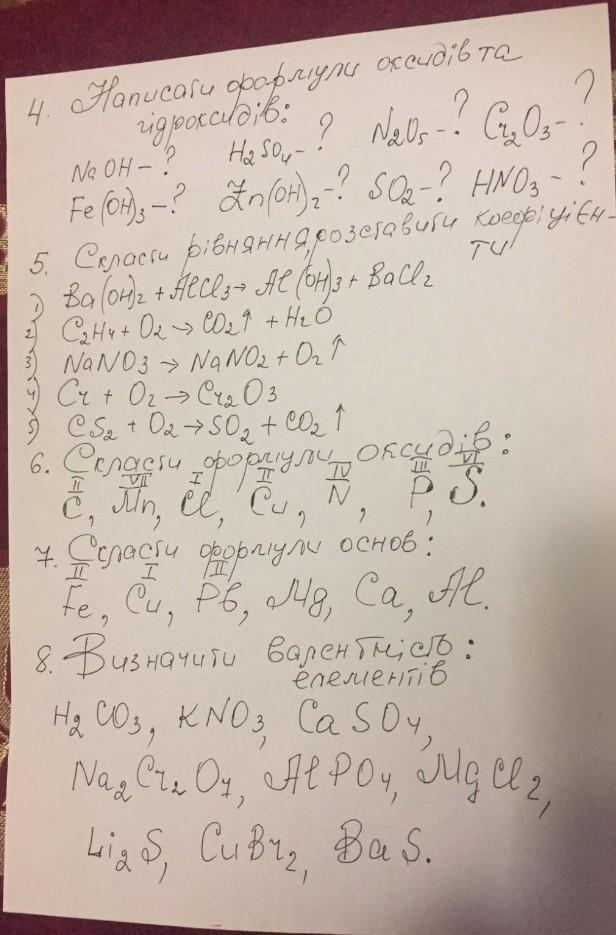 4. Написати формули оксидів та
гідроксидів:
NaOH - ? H2SO4 - ? N2O5 - ? Cr2O3 - ?
Fe(OH)3 - ? Zn(OH)2 - ? SO2 - ? HNO3 - ?
5. Скласти рівняння, розставити коефіцієн-
ти
1) Ba(OH)2 + AlCl3 → Al(OH)3 + BaCl2
2) C2H4 + O2 → CO2↑ + H2O
3) NaNO3 → NaNO2 + O2↑
4) Cr + O2 → Cr2O3
5) CS2 + O2 → SO2 + CO2↑
6. Скласти формули оксидів:
II VII I II IV III VI
C, Mn, Cl, Cu, N, P, S.
7. Скласти формули основ:
II I II
Fe, Cu, Pb, Mg, Ca, Al.
8. Визначити валентність:
елементів
H2CO3, KNO3, CaSO4,
Na2Cr2O7, AlPO4, MgCl2,
Li2S, CuBr2, BaS.